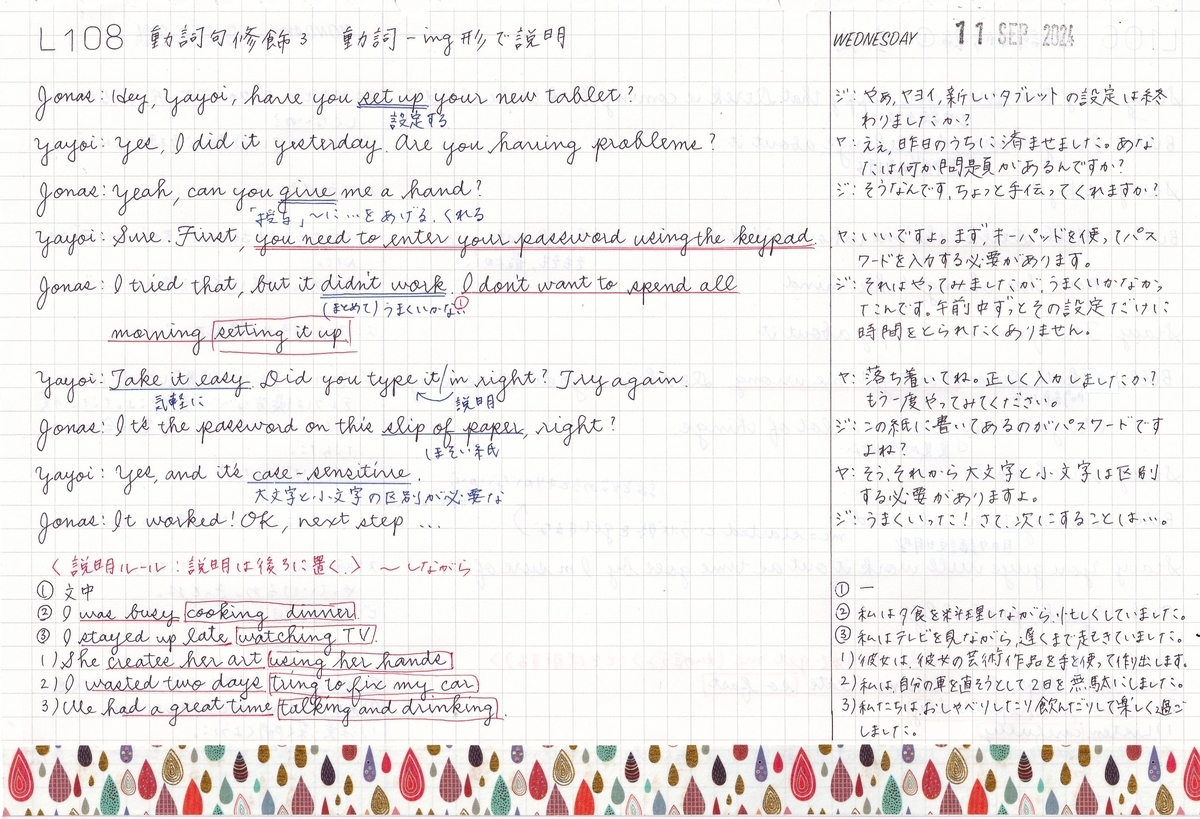 L108 動詞句修飾3 動詞-ing形で説明
WEDNESDAY 11 SEP 2024
Jonas: Hey, Yayoi, have you set up your new tablet?
設定する
Yayoi: Yes, I did it yesterday. Are you having problems?
Jonas: Yeah, can you give me a hand?
「授与」〜に…をあげる、くれる
Yayoi: Sure. First, you need to enter your password using the keypad.
Jonas: I tried that, but it didn't work. I don't want to spend all
(まとめて)うまくいかない ①
morning setting it up.
Yayoi: Take it easy. Did you type it/in right? Try again.
気軽に 説明
Jonas: It's the password on this slip of paper, right?
ほそい紙
Yayoi: Yes, and it's case-sensitive.
大文字と小文字の区別が必要な
Jonas: It worked! OK, next step ...
〈説明ルール:説明は後ろに置く。〉 〜しながら
① 文中
② I was busy cooking dinner.
③ I stayed up late watching TV.
1) She creates her art using her hands.
2) I wasted two days tring to fix my car.
3) We had a great time talking and drinking.
ジ: やぁ、ヤヨイ、新しいタブレットの設定は終
わりましたか?
ヤ: ええ、昨日のうちに済ませました。あな
たは何か問題があるんですか?
ジ: そうなんです、ちょっと手伝ってくれますか?
ヤ: いいですよ。まず、キーパッドを使ってパス
ワードを入力する必要があります。
ジ: それはやってみましたが、うまくいかなかっ
たんです。午前中ずっとその設定だけに
時間をとられたくありません。
ヤ: 落ち着いてね。正しく入力しましたか?
もう一度やってみてください。
ジ: この紙に書いてあるのがパスワードです
よね?
ヤ: そう、それから大文字と小文字は区別
する必要がありますよ。
ジ: うまくいった! さて、次にすることは…。
① ー
② 私は夕食を料理しながら、忙しくしていました。
③ 私はテレビを見ながら、遅くまで起きていました。
1) 彼女は、彼女の芸術作品を手を使って作り出します。
2) 私は、自分の車を直そうとして2日を無駄にしました。
3) 私たちは、おしゃべりしたり飲んだりして楽しく過ご
しました。